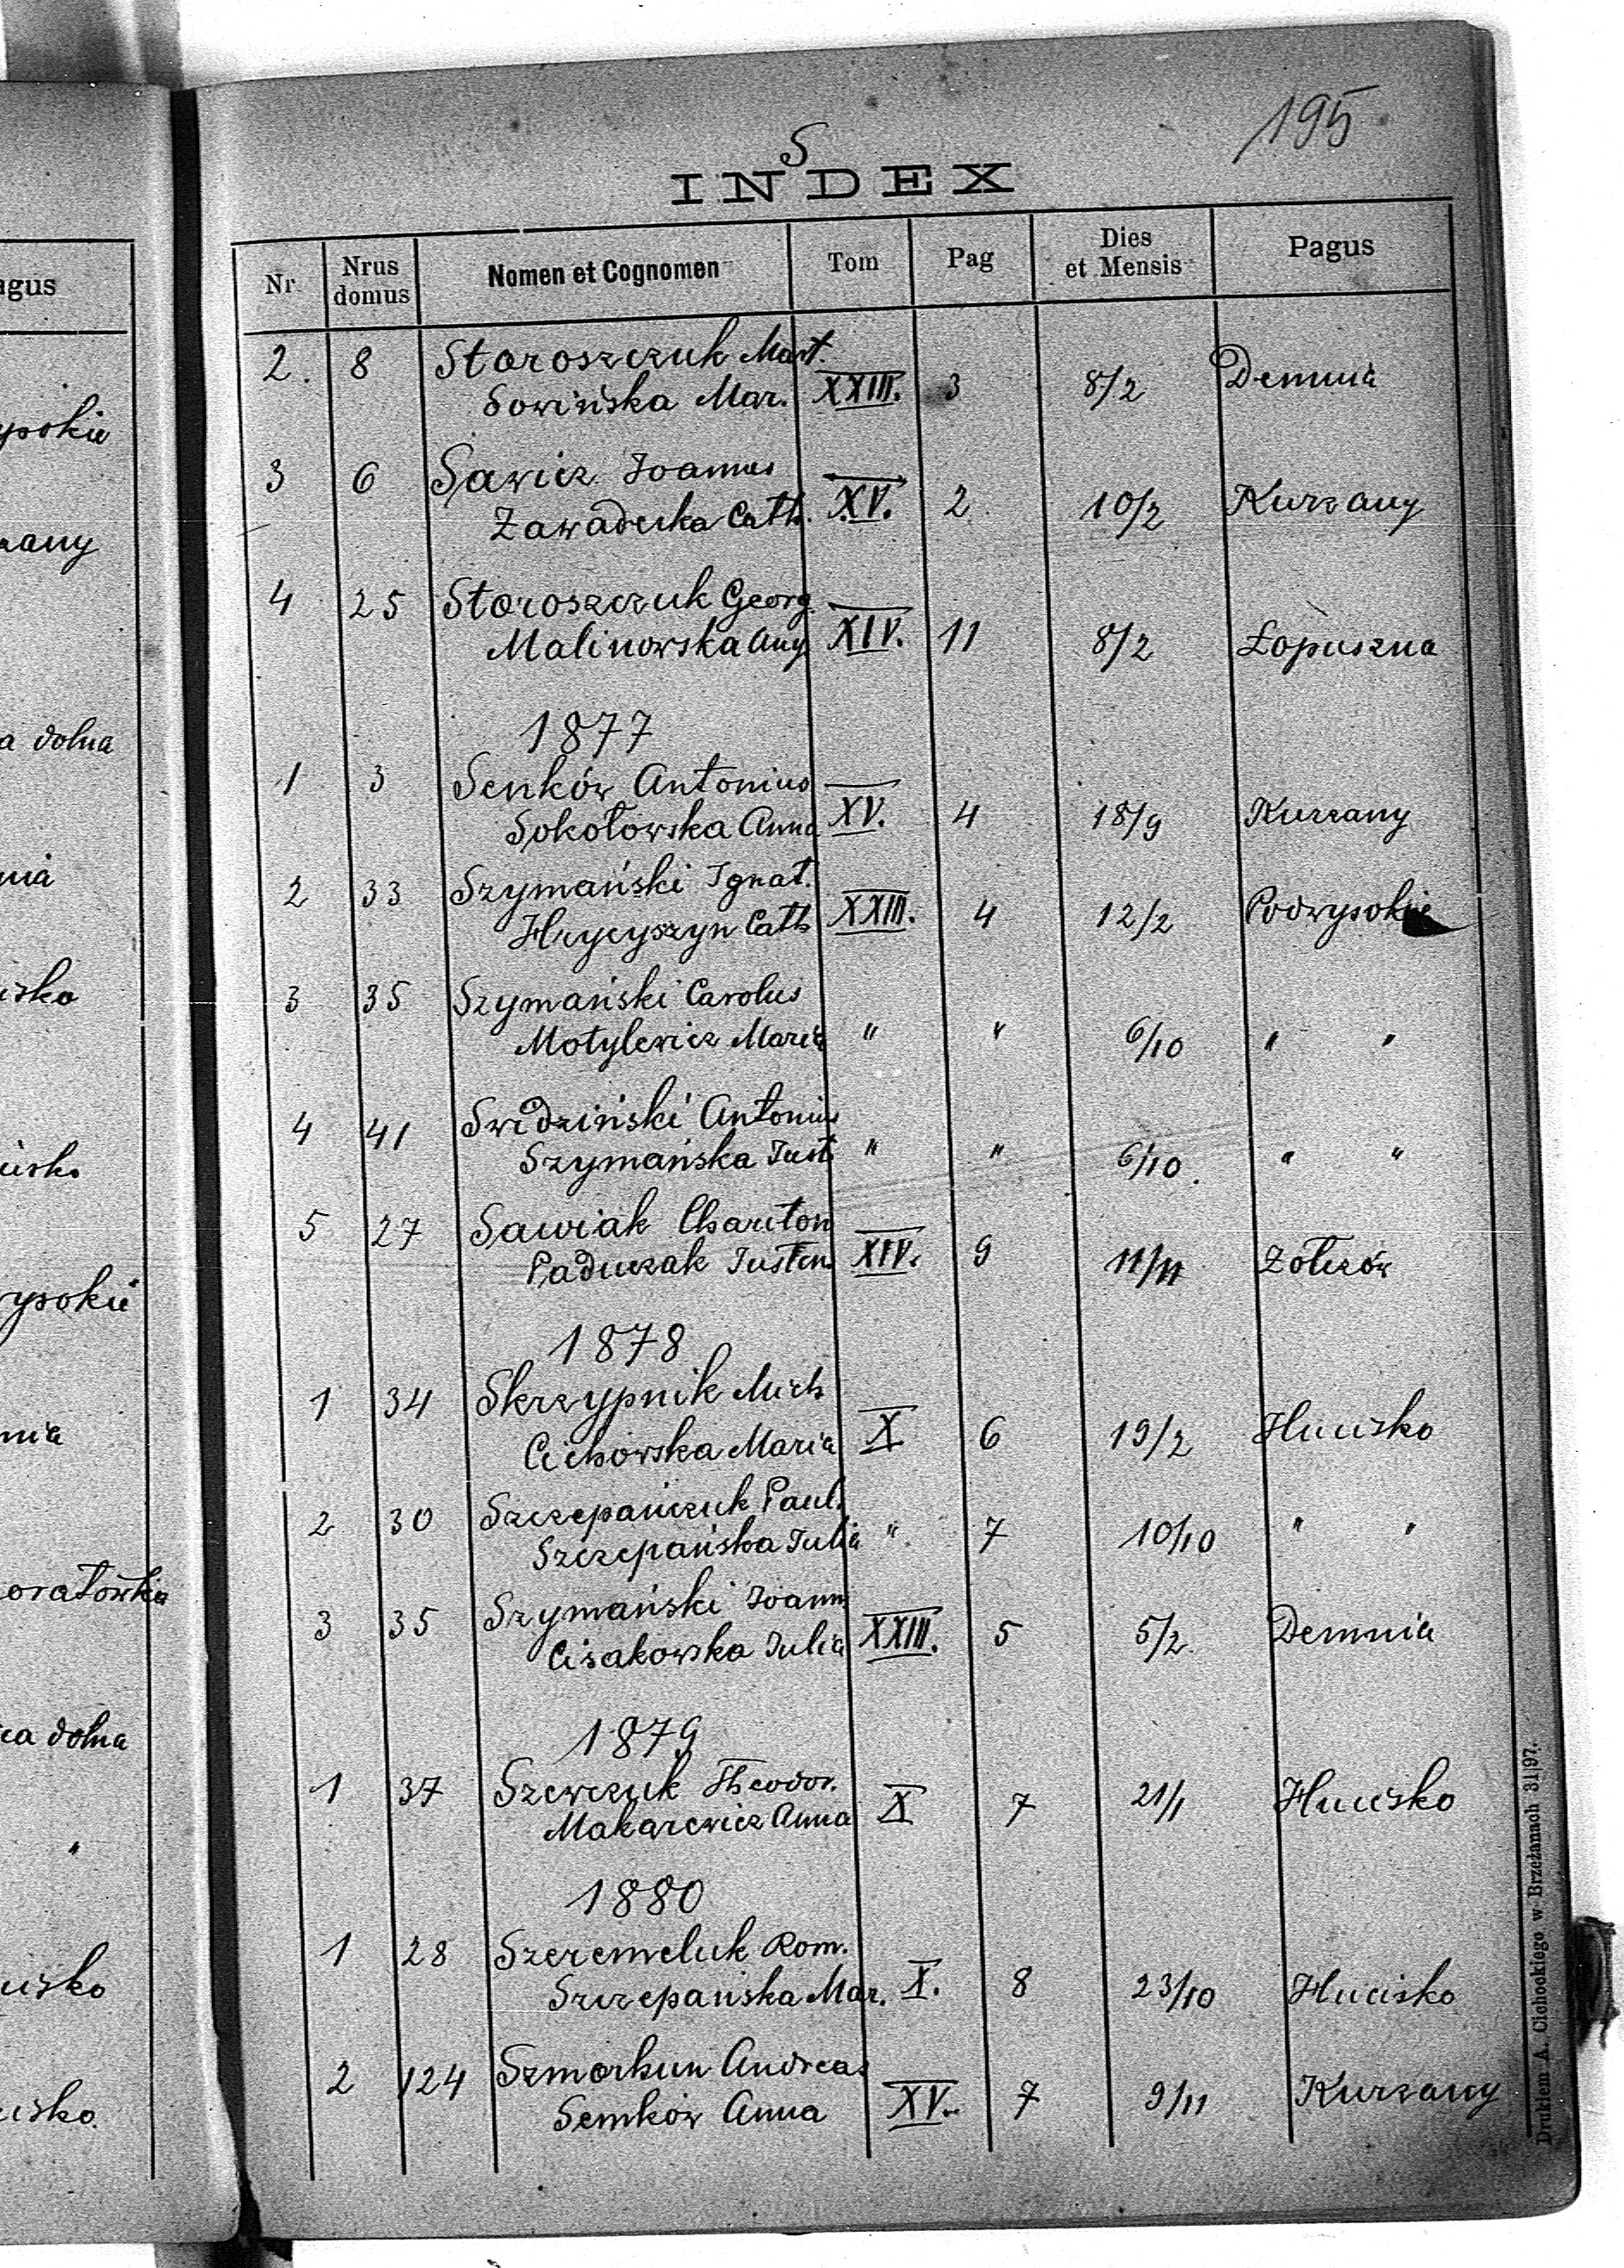 195
S
INDEX
Nr. Nrus domus Nomen et Cognomen Tom Pag Dies et Mensis Pagus
2. 8 Staroszczuk Mart.
Sowińska Mar. XXIII. 3 8/2 Demnia
3 6 Sawicz Joannes
Zawadecka Cath. XV. 2 10/2 Kurzany
4 25 Staroszczuk Georg.
Malinowska Ang XIV. 11 8/2 Łopuszna
1877
1 3 Senków Antonius
Sokołowska Anna XV. 4 18/9 Kurzany
2 33 Szymański Ignat.
Hrycyszyn Cath XXIII. 4 12/2 Podwysokie
3 35 Szymański Carolus
Motylewicz Maria " " 6/10 " "
4 41 Swidziński Antonius
Szymańska Just " " 6/10. " "
5 27 Sawiak Chariton
Paduczak Justin. XIV. 9 11/11 Żołczów
1878
1 34 Skrzypnik Mich
Cichowska Maria X 6 19/2 Hucisko
2 30 Szczepańczuk Paul.
Szczepańska Julia " 7 10/10 " "
3 35 Szymański Joann.
Cisakowska Julia XXIII. 5 5/2 Demnia
1879
1 37 Szewczuk Theodor.
Makarewicz Anna X 7 21/1 Hucisko
1880
1 28 Szeremeluk Rom.
Szczepańska Mar. X. 8 23/10 Hucisko
2 124 Szmorhun Andreas
Semków Anna XV. 7 9/11 Kurzany
Drukiem A. Cichockiego w Brzeżanach 31|97.
agus
dolna